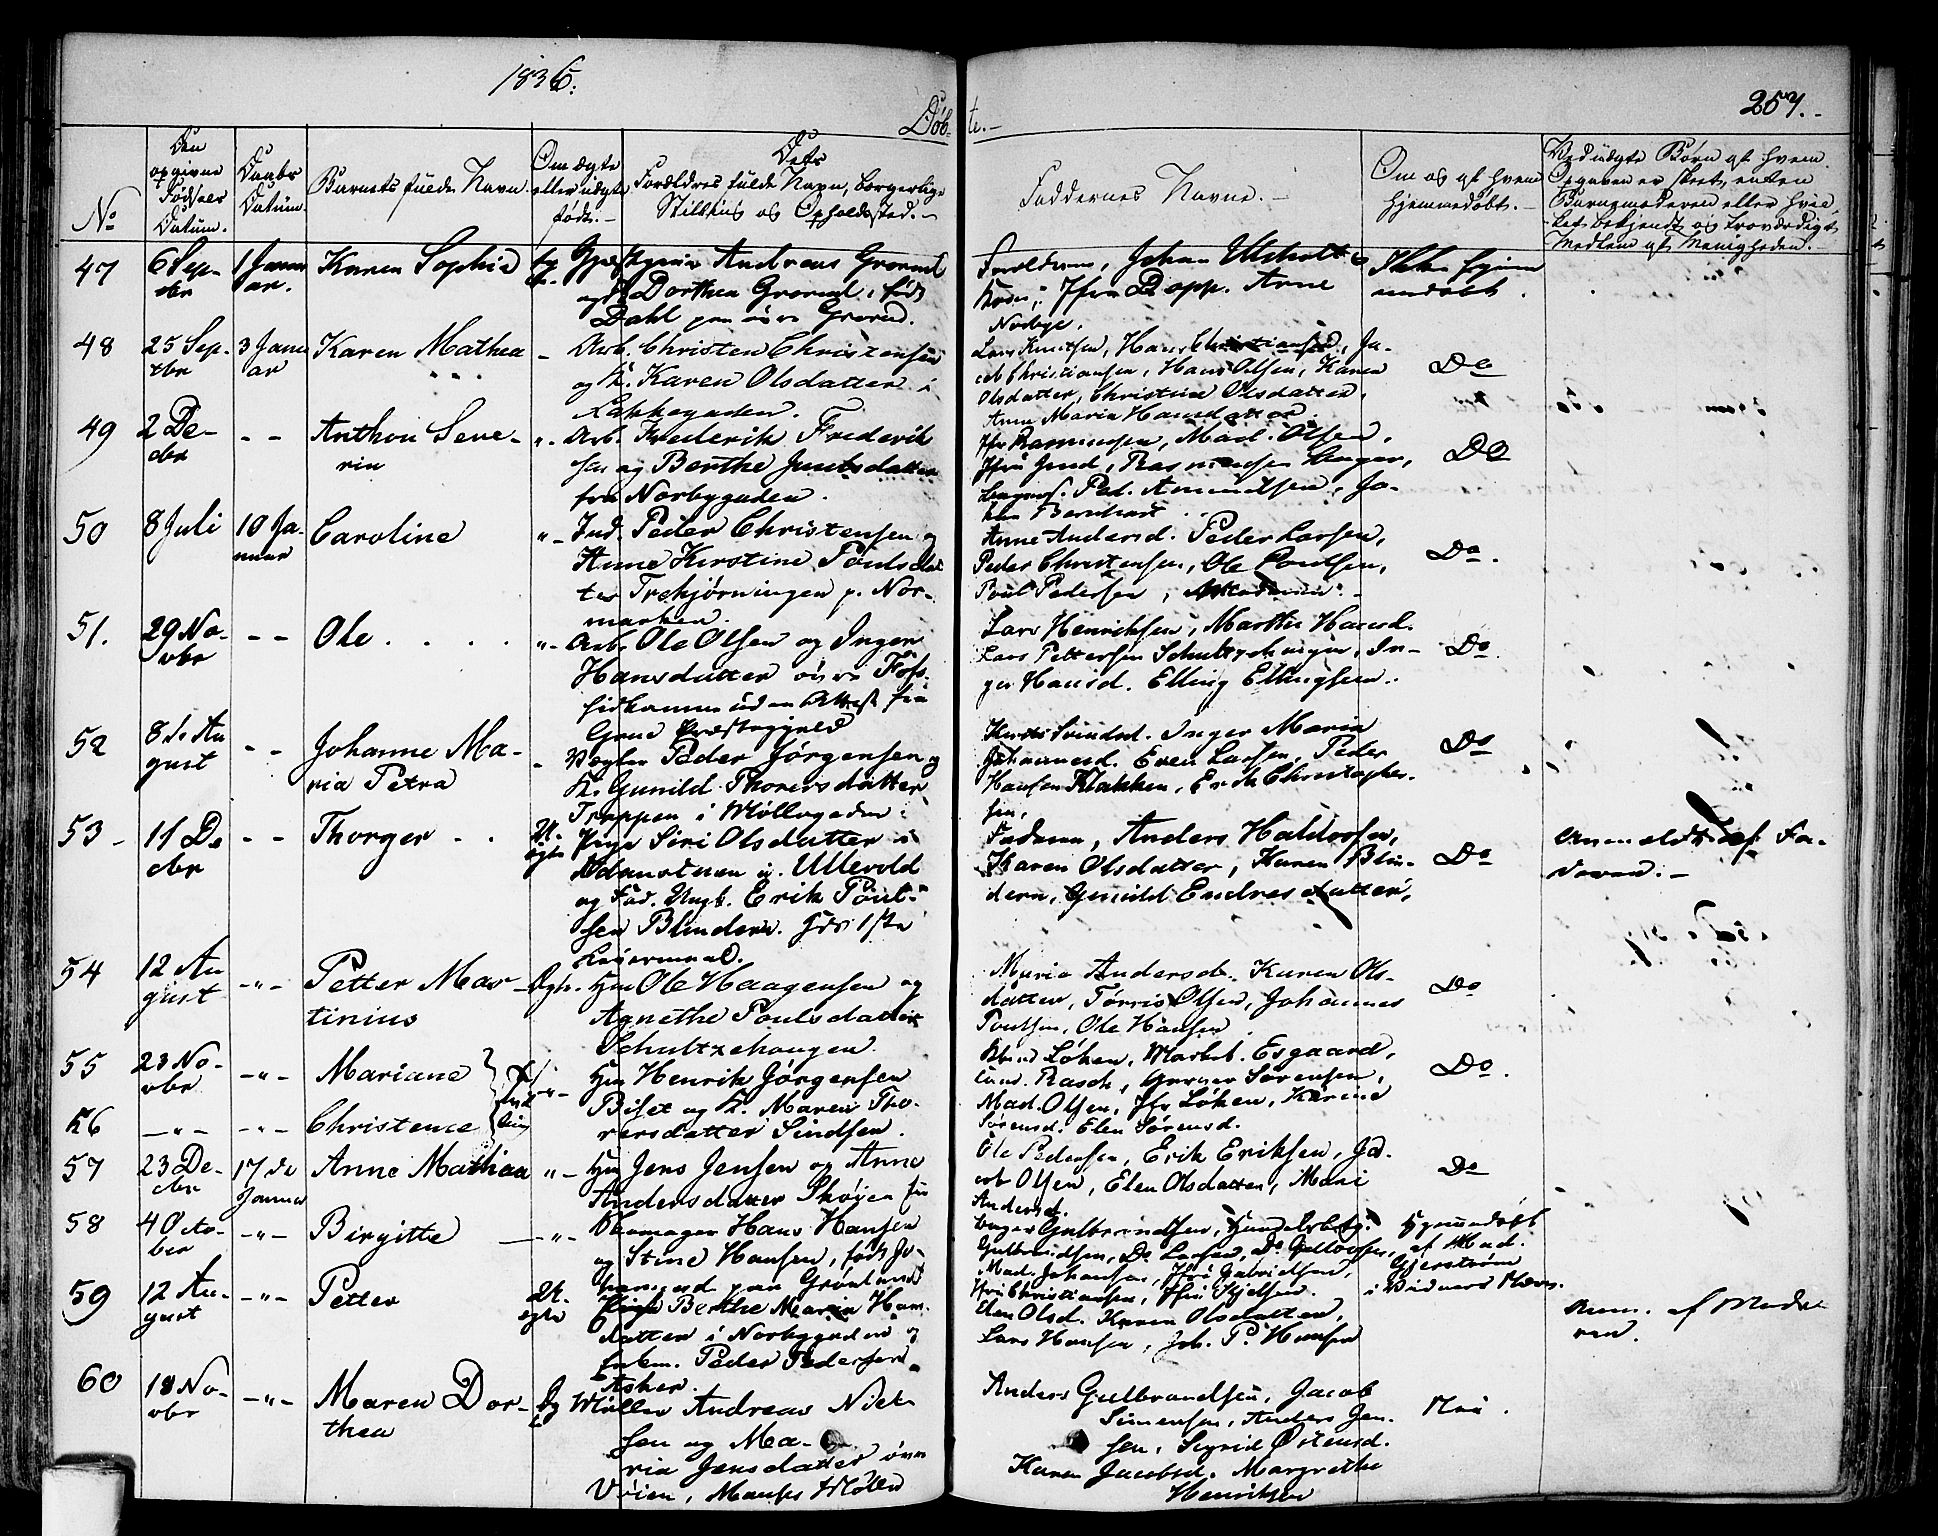 1836.
257.
Døbte.
No
Den opgivne Fødsels Datum.
Daabs Datum.
Barnets fulde Navn.
Om ægte eller uægte født.
Dets Forældres fulde Navn, borgerlige Stilling og Opholdssted.
Faddernes Navne.
Om og af hvem hjemmedøbt.
Ved uægte Børn af hvem Opgaven er skeet, enten Barnemoderen eller hvilket bekjendt og troværdigt Medlem af Menigheden.
47
6 Sep-
tbr
1 Janu
ar.
Karen Sophie
Andreas Grorud
og Dorthea Grorud, født
Dahl paa øvre Grorud.
Forældrene, Johan Ulsholt
Jfru Dopp. Arne
Nordbye.
Ikke hjem
medøbt.
48
25 Sep-
tbr
3 Janu
ar
Karen Mathea
Arb. Christen Christensen
og K. Karen Olsdatter i
Lakkegaden.
Lars Knutsen, Hans Christiansen, Ja-
cob Christiansen, Hans Olsen, Karen
Olsdatter, Christine Olsdatter,
Anne Maria Hansdatter.
Do
49
2 De-
cbr
Anthon Seve-
rin
Arb. Frederik Frederik
sen og Berthe Juulsdatter
fra Norbygaden.
Rasmussen, Mad. Olsen,
Jfru Juul, Rasmussen
Ped. Amundsen, Jo-
han Bernhart
Do
50
8 Juli
10 Ja-
nuar
Caroline
Ind. Peder Christensen og
Anne Kirstine Poulsdat
ter Trehjørningen p. Nor-
marken.
Anne Andersd. Peder Larsen,
Peder Christensen, Ole Poulsen,
Poul Pedersen,
Do.
51.
29 No-
vbr
Ole
Arb. Ole Olsen og Inger
Hansdatter øvre Fos-
sidkammen uden Attest fra
Grue Præstegjeld
Lars Henriksen, Marthe Hansd.
Lars Pettersen Schultzehaugen, In-
ger Hansd. Elling Ellingsen.
Do
52
8de Au
gust
Johanne Ma-
ria Petra
Vægter Peder Jørgensen og
K. Gunild Thorersdatter
Trappen i Møllegaden
Svindsd. Inger Maria
Johannesd. Even Larsen, Peder
Hansen Klakken, Erik Christophe-
sen,
Do
53
11 De
cbr
Thorger
U-
ægte
Pige Siri Olsdatter i
Adamstuen u. Ullevold
og Fad. Ungk. Erik Poul-
sen Blindern. Hds 1ste
Leiermaal.
Faderen, Anders Haldorsen,
Karen Olsdatter, Karen Blin-
dern, Gunild Endresdatter,
Do
Anmeldt af Fa-
deren.
54
12 Au
gust
Petter Mar-
tinius
Ægte.
Hm Ole Haagensen og
Agnethe Poulsdatter
Schultzehaugen.
Maria Andersd. Karen Ols-
datter, Tørris Olsen, Johannes
Poulsen, Ole Hansen
Do
55
23 No-
vbr
Mariane
Hm Henrik Jørgensen
Biset og K. Maren Tho-
rersdatter Sindsen.
Løken, Marbet. Esgaard,
Rasch, Sørensen,
Mad. Olsen, Jfr Løken, Karine
Sørensd. Elen Sørensd.
Do.
56
Christence
57
23 De-
cbr
17 de
Januar
Anne Mathea
Hm Jens Jensen og Anne
Andersdatter Skøien
Ole Pedersen, Erik Eriksen, Ja-
cob Olsen, Elen Olsdatter, Mari
Andersd.
Do
58
4 Octo-
ber
Birgitte
Hans Hansen
og Stine Hansen, født Jo-
hansend paa Grønland
Gulbrandsen,
Gulbrandsen, Do Larsen, Do
Mad. Johansen, Jfru Gabrielsen,
Christiansen, Jfru Kjelsen.
Hjemmedøbt
af Mad.
Gjerstrøm
59
12 Au-
gust
Petter
U-
ægte
Pige Berthe Maria Han-
datter i Norbygaden og
Peder Pedersen
Asker.
Elen Olsd. Karen Olsdatter,
Lars Hansen, Joh. P. Hansen
Anm. af Mode-
ren.
60
18 No-
vbr
Maren Dor-
thea
Møller Andreas Niel-
sen og Ma-
ria Jensdatter øvre
Vøien, Mølle
Anders Gulbrandsen, Jacob
Simensen, Anders Jen-
sen, Sigrid Østensd.
Karen Jacobsd. Margrethe
Henriksen
Nei.